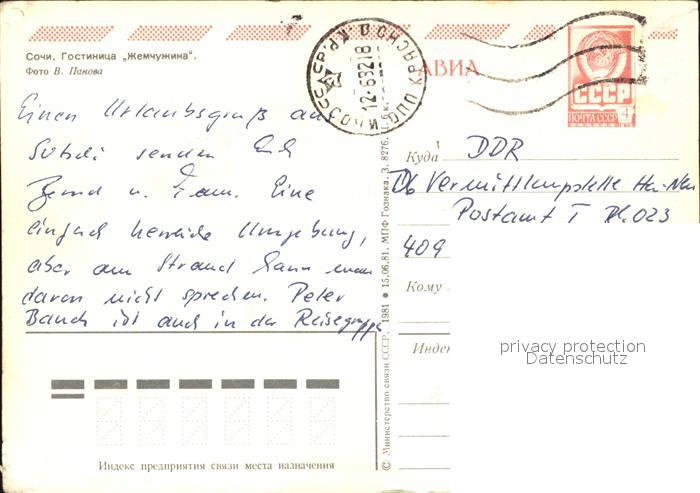 Сочи. Гостиница „Жемчужина“.
Фото В. Панова
АВИА
СССР
ПОЧТА СССР
4
Einen Urlaubsgruß aus
senden Euch
Bernd u. Fam. Eine
einfach herrliche Umgebung,
aber am Strand kann man
davon nicht sprechen. Peter
Bauch ist auch in der Reisegruppe
Куда
DDR
Vermittlungsstelle Ha-Neu
Postamt I Pl. 023
409
Кому
Индекс
privacy protection
Datenschutz
© Министерство связи СССР, 1981 ● 15.06.81. МПФ Гознака. З. 8276.
Индекс предприятия связи места назначения